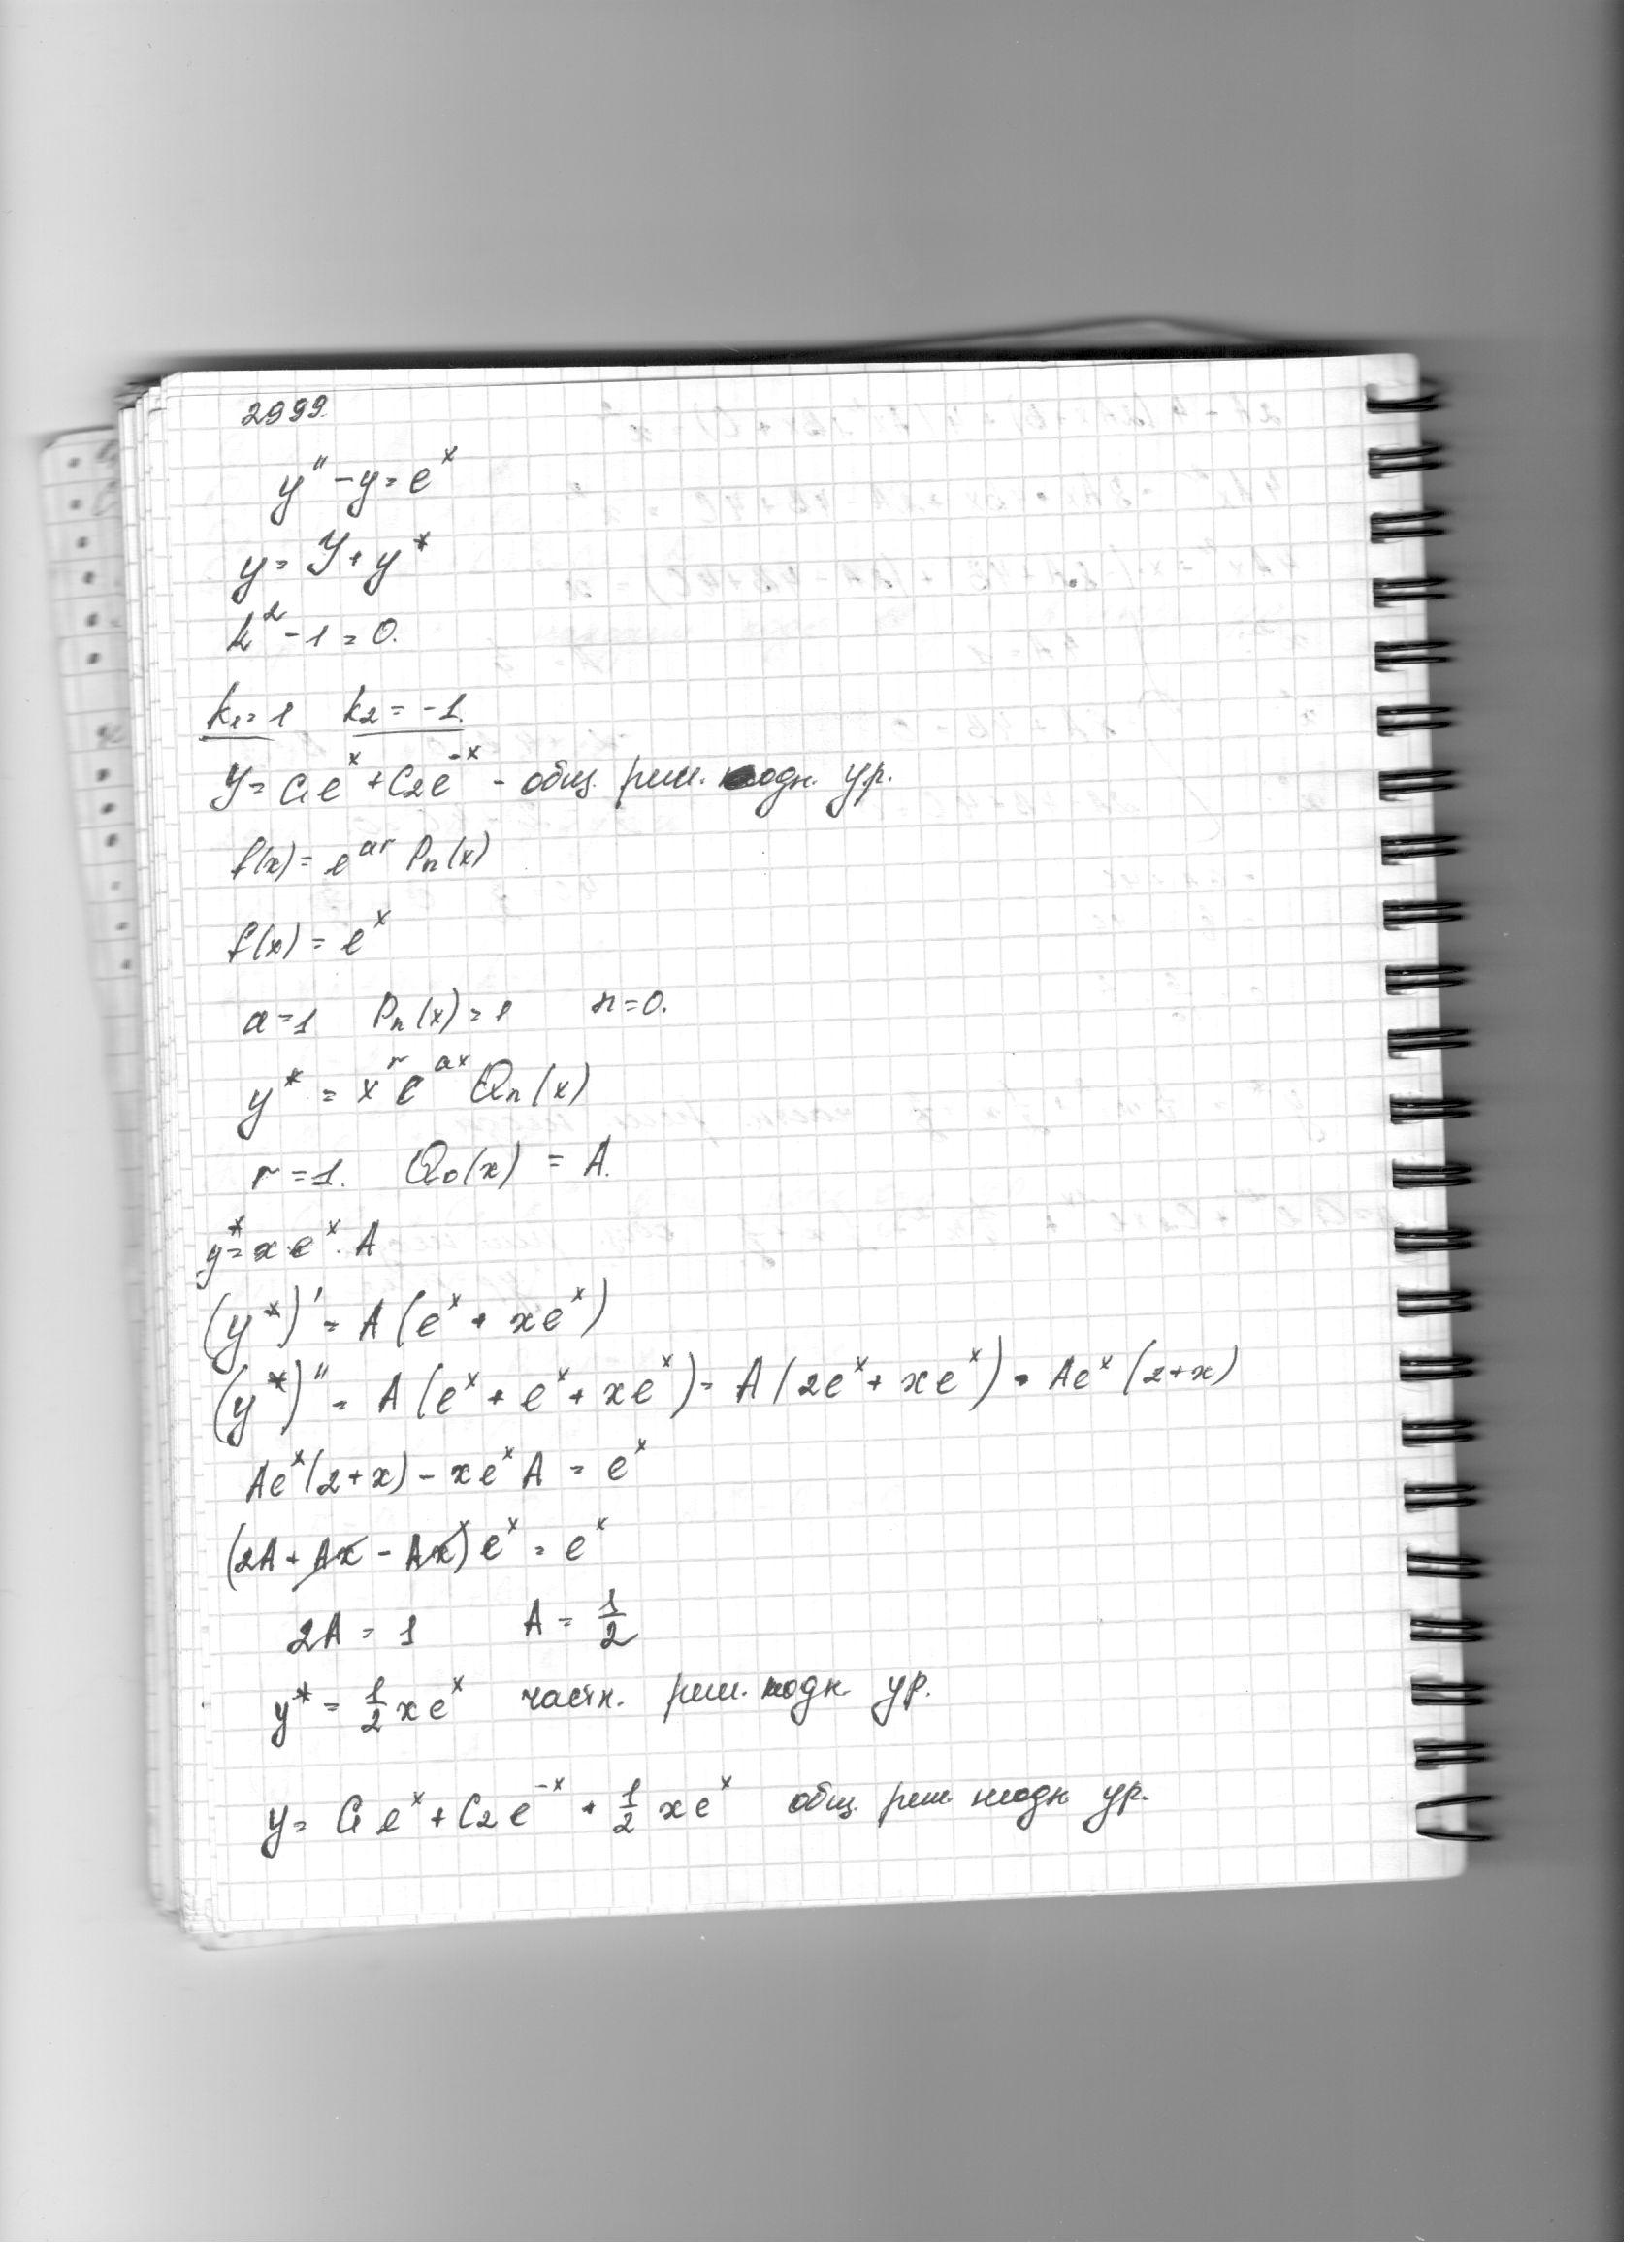 2999.
y'' - y = e^x
y = Y + y*
k^2 - 1 = 0.
k1 = 1 k2 = -1.
Y = C1 e^x + C2 e^-x - общ. реш. одн. ур.
f(x) = e^ar Pn(x)
f(x) = e^x
a = 1 Pn(x) = 1 n = 0.
y* = x^r e^ax Qn(x)
r = 1. Q0(x) = A.
y* = x e^x · A
(y*)' = A(e^x + xe^x)
(y*)'' = A(e^x + e^x + xe^x) = A(2e^x + xe^x) = Ae^x(2+x)
Ae^x(2+x) - xe^x A = e^x
(2A + Ax - Ax)e^x = e^x
2A = 1 A = 1/2
y* = 1/2 xe^x частн. реш. неодн. ур.
y = C1 e^x + C2 e^-x + 1/2 xe^x общ. реш неодн ур.